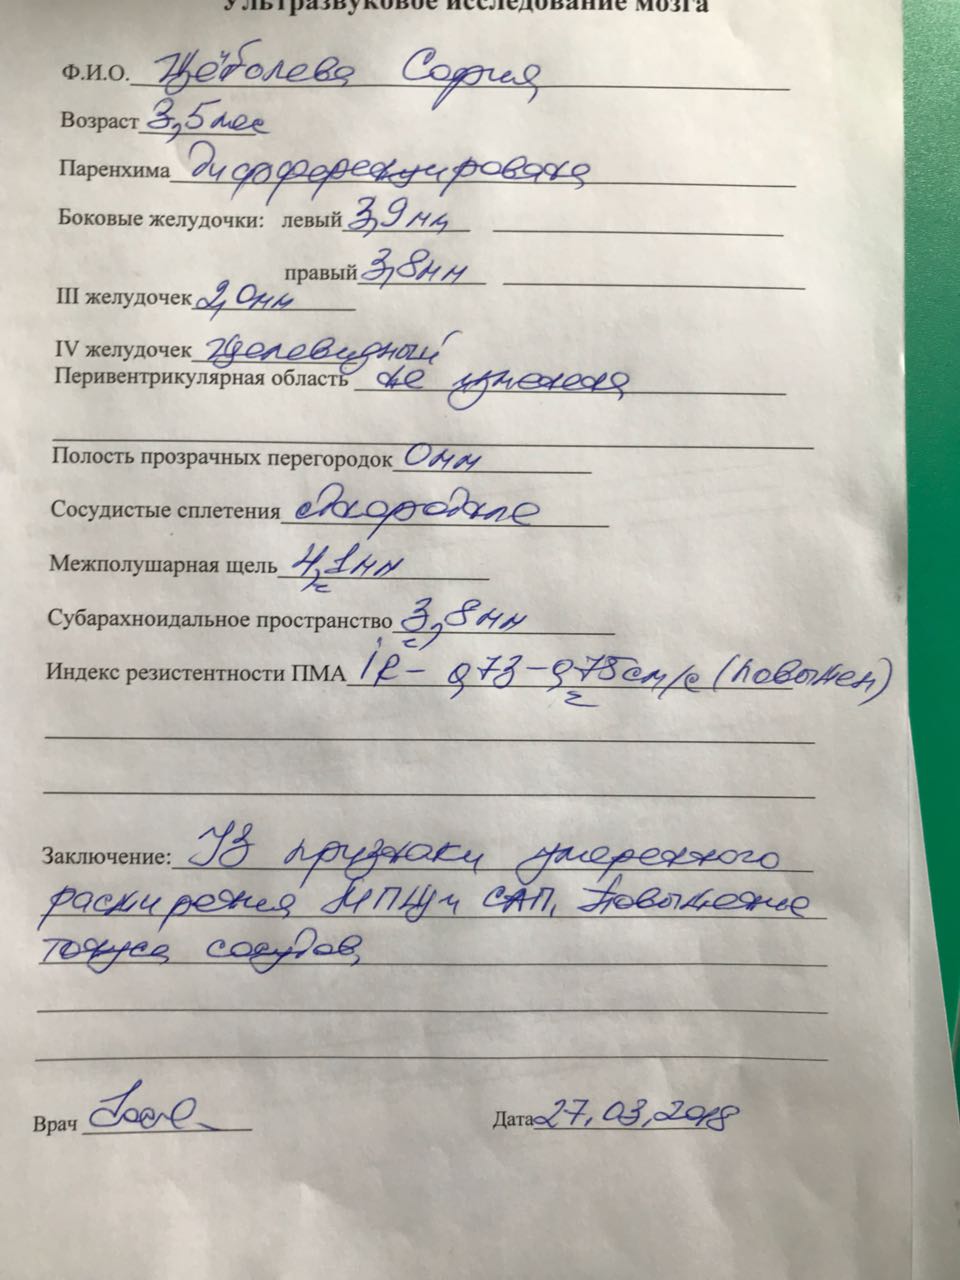 Ультразвуковое исследование мозга
Ф.И.О. Щёболева София
Возраст 3,5 мес
Паренхима дифференцирована
Боковые желудочки: левый 3,9 мм
правый 3,8 мм
III желудочек 2,0 мм
IV желудочек щелевидный
Перивентрикулярная область не изменена
Полость прозрачных перегородок 0 мм
Сосудистые сплетения однородные
Межполушарная щель 4,1 мм
Субарахноидальное пространство 3,8 мм
Индекс резистентности ПМА IR – 0,73 – 0,75 см/с (повышен)
Заключение: УЗ признаки умеренного
расширения МПЩ и САП. Повышение
тонуса сосудов
Врач
Дата 27.03.2018